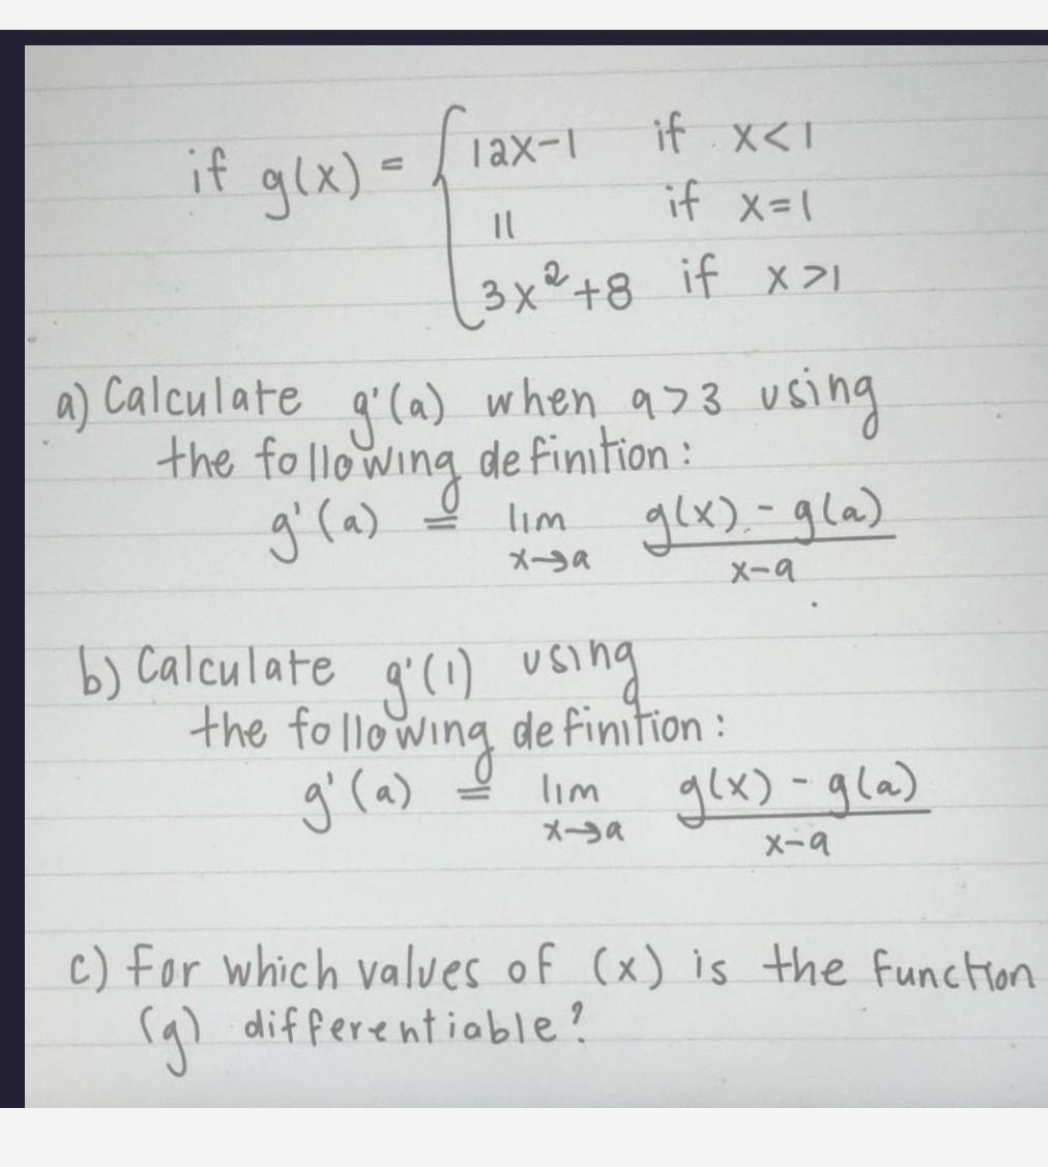 if g(x) = { 12x-1 if x<1
11 if x=1
3x²+8 if x>1
a) Calculate g'(a) when a>3 using
the following definition:
g'(a) = lim g(x) - g(a)
x→a x-a
b) Calculate g'(1) using
the following definition:
g'(a) = lim g(x) - g(a)
x→a x-a
c) For which values of (x) is the function
(g) differentiable?